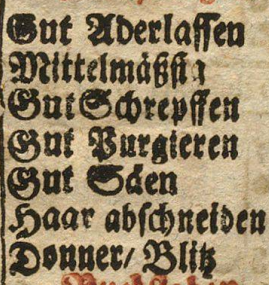 Gut Aderlassen
Mittelmäßig
Gut Schrepffen
Gut Purgieren
Gut Säen
Haar abschneiden
Donner/ Blitz